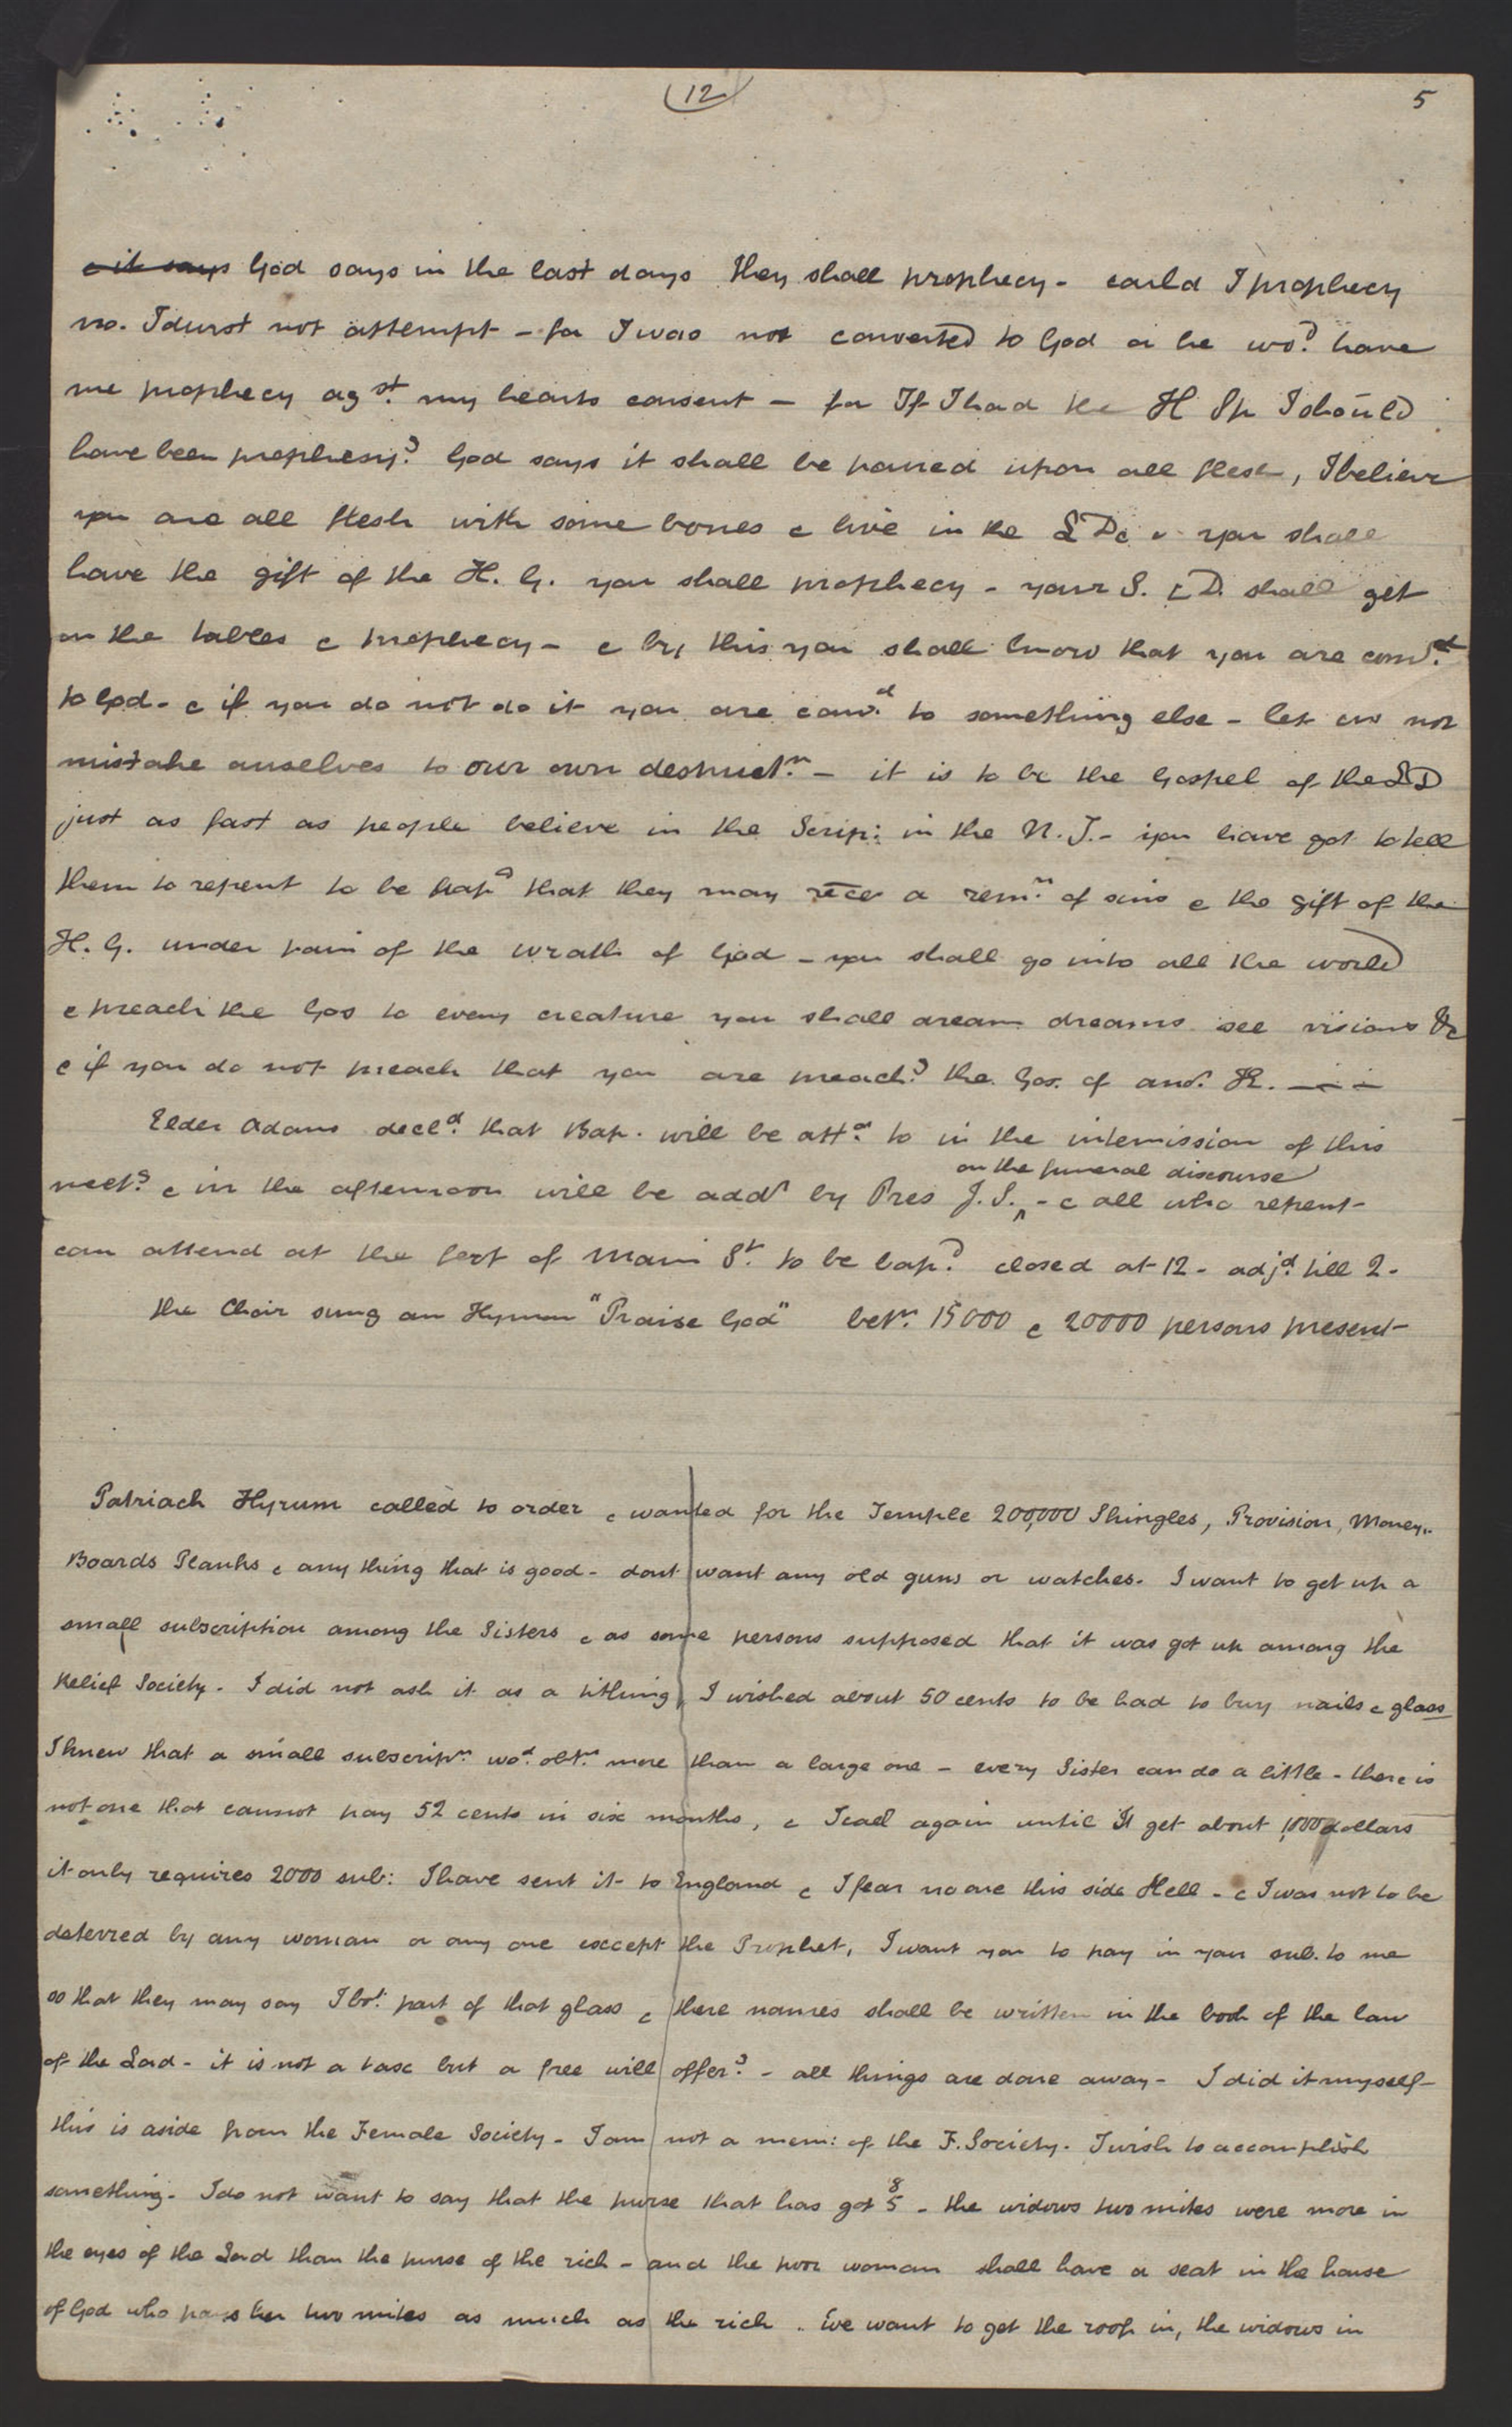 (12)
5
& it says God says in the last days they shall prophecy - could I prophecy
no. I durst not attempt - for I was not converted to God or he wod. have
me prophecy agst. my hearts consent - for If I had the H Sp I should
have been prophesyg. God says it shall be poured upon all flesh, I believe
you are all flesh with some bones & live in the L D & you shall
have the gift of the H. G. you shall prophecy - your S. & D. shall get
on the tables & prophecy - & by this you shall know that you are convd.
to God - & if you do not do it you are convd. to something else - let us not
mistake ourselves to our own destructn. - it is to be the Gospel of the L D
just as fast as people believe in the Scrip: in the N. T. - you have got to tell
them to repent to be bapd that they may rece a remn. of sins & the gift of the
H. G. under pain of the wrath of God - you shall go into all the world
& preach the Gos to every creature you shall dream dreams see visions &c
& if you do not preach that you are preachg. the Gos. of anor.
Elder Adams decld. that Bap. will be attd. to in the intermission of this
meetg. & in the afternoon will be addd by Pres J. S. ^ on the funeral discourse - & all who repent -
can attend at the foot of Main St. to be bapd. closed at 12 - adjd. till 2 -
the Choir sung an Hymn "Praise God" betn. 15000 & 20000 persons present -
Patriach Hyrum called to order & wanted for the Temple 200,000 Shingles, Provision, Money -
Boards Planks & any thing that is good - dont want any old guns or watches. I want to get up a
small subscription among the Sisters & as some persons supposed that it was got up among the
Relief Society - I did not ask it as a tithing, I wished about 50 cents to be had to buy nails & glass
I knew that a small subscriptn. wod. obtn. more than a large one - every Sister can do a little - there is
not one that cannot pay 52 cents in six months, & I call again until I get about 1,000 dollars
it only requires 2000 sub: I have sent it to England & I fear no one this side Hell - & I was not to be
deterred by any woman or any one except the Prophet, I want you to pay in your sub. to me
so that they may say I bot. part of that glass & there names shall be written in the book of the law
of the Lord - it is not a tax but a free will offerg. - all things are done away - I did it myself -
this is aside from the Female Society - I am not a mem: of the F. Society. I wish to accomplish
something. I do not want to say that the purse that has got $5 - the widows two mites were more in
the eyes of the Lord than the purse of the rich - and the poor woman shall have a seat in the house
of God who pays her two mites as much as the rich. We want to get the roof in, the widows in